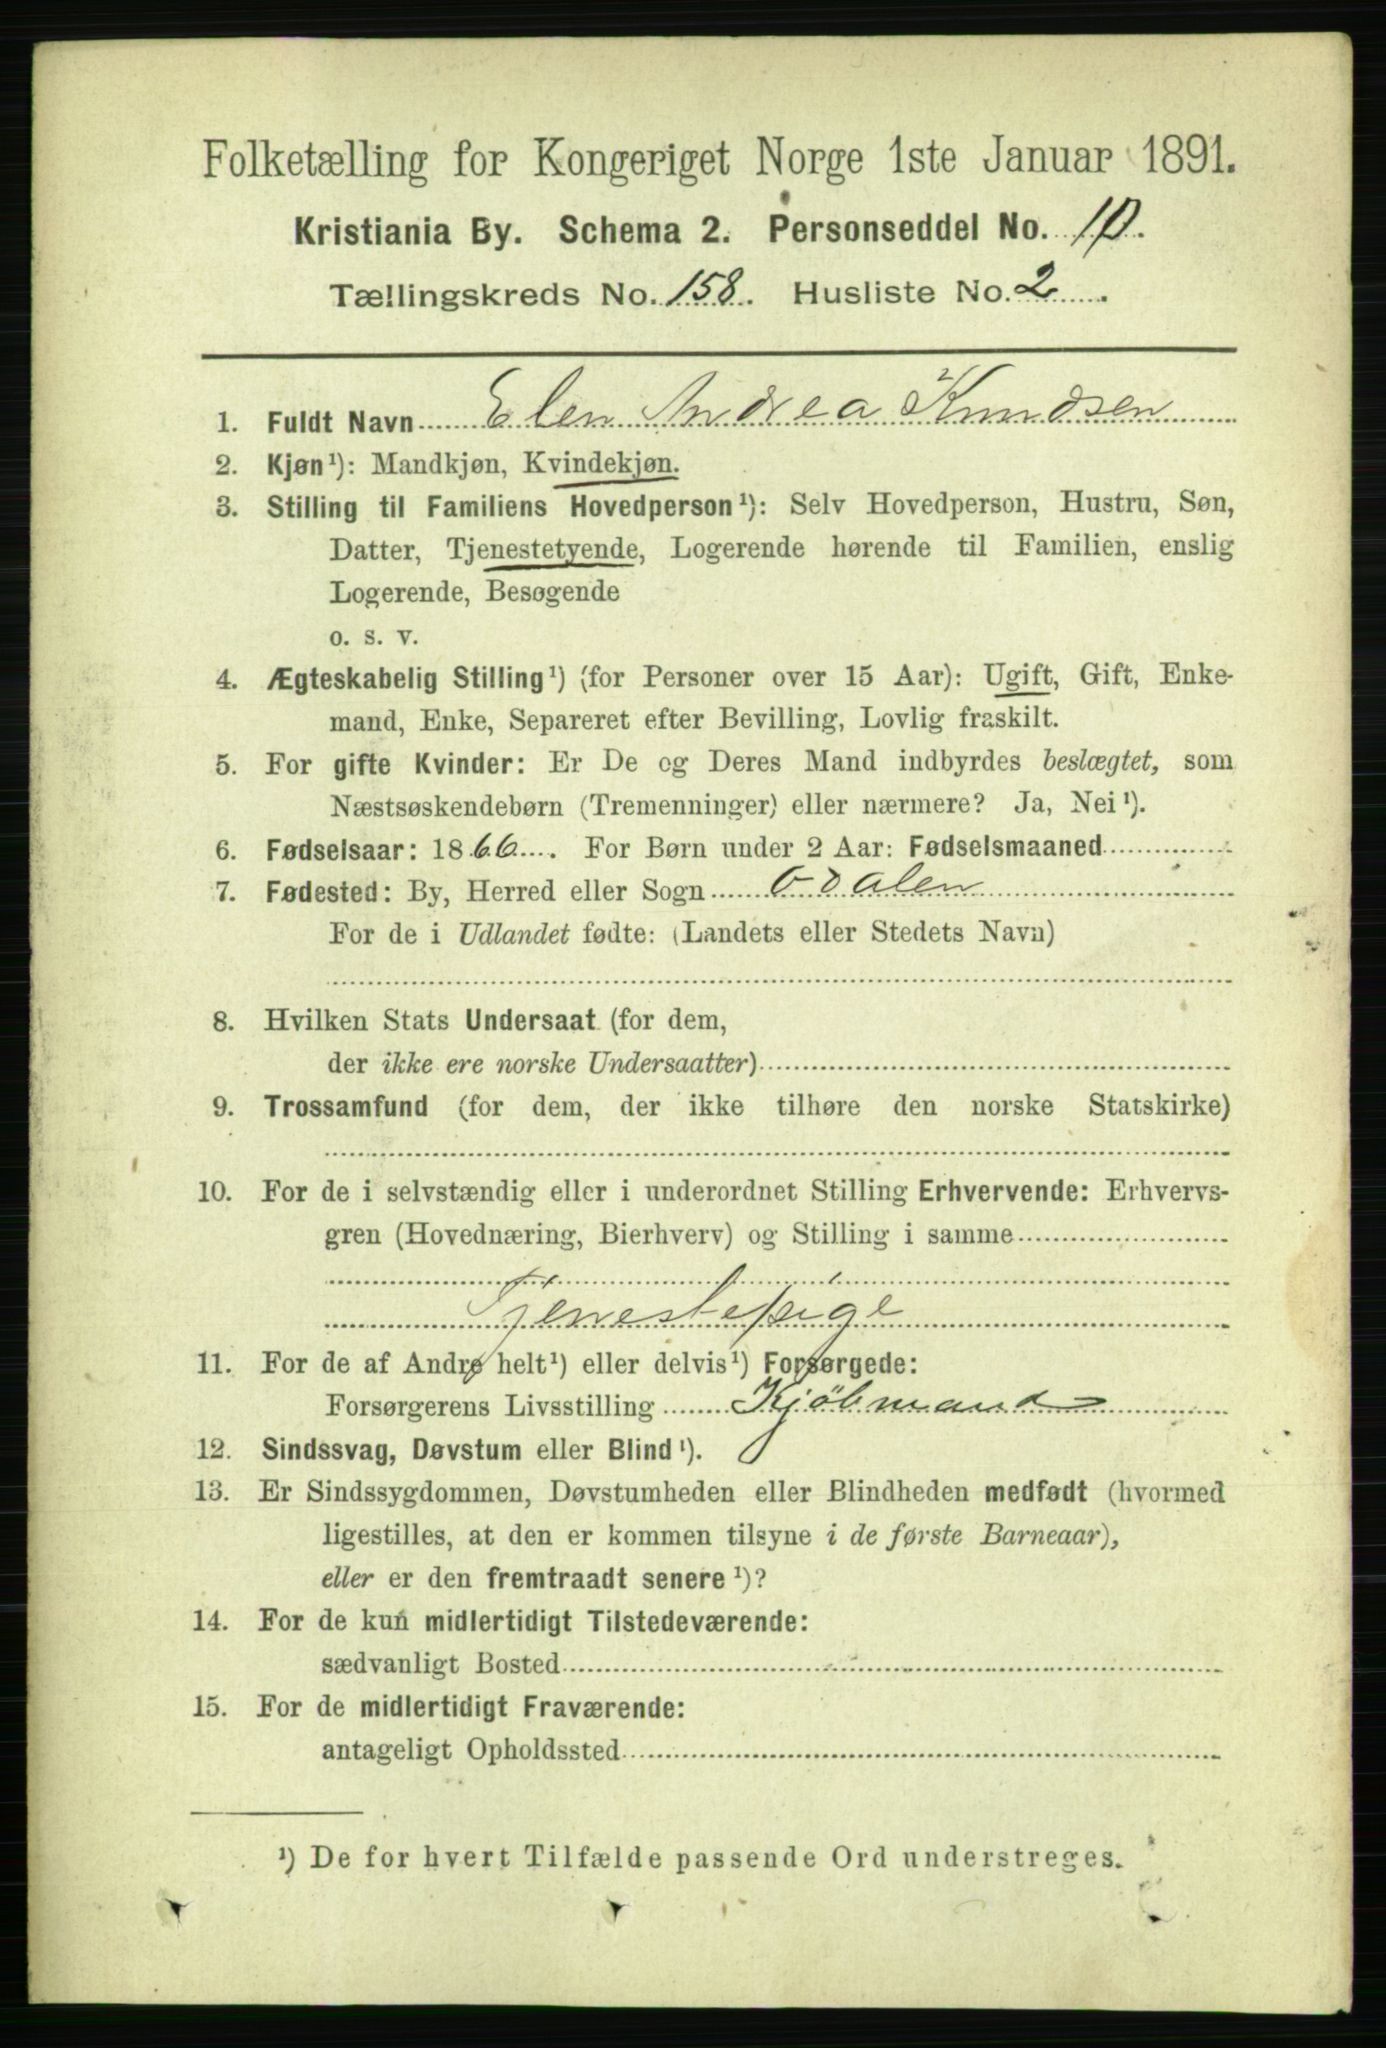 Folketælling for Kongeriget Norge 1ste Januar 1891.
Kristiania By. Schema 2. Personseddel No. 10.
Tællingskreds No. 158. Husliste No. 2.
1. Fuldt Navn Elen Andrea Knudsen
2. Kjøn¹): Mandkjøn, Kvindekjøn.
3. Stilling til Familiens Hovedperson¹): Selv Hovedperson, Hustru, Søn,
Datter, Tjenestetyende, Logerende hørende til Familien, enslig
Logerende, Besøgende
o. s. v.
4. Ægteskabelig Stilling¹) (for Personer over 15 Aar): Ugift, Gift, Enke-
mand, Enke, Separeret efter Bevilling, Lovlig fraskilt.
5. For gifte Kvinder: Er De og Deres Mand indbyrdes beslægtet, som
Næstsøskendebørn (Tremenninger) eller nærmere? Ja, Nei¹).
6. Fødselsaar: 1866. For Børn under 2 Aar: Fødselsmaaned
7. Fødested: By, Herred eller Sogn Odalen
For de i Udlandet fødte: (Landets eller Stedets Navn)
8. Hvilken Stats Undersaat (for dem,
der ikke ere norske Undersaatter)
9. Trossamfund (for dem, der ikke tilhøre den norske Statskirke)
10. For de i selvstændig eller i underordnet Stilling Erhvervende: Erhvervs-
gren (Hovednæring, Bierhverv) og Stilling i samme
Tjenestepige
11. For de af Andre helt¹) eller delvis¹) Forsørgede:
Forsørgerens Livsstilling Kjöbmand
12. Sindssvag, Døvstum eller Blind¹).
13. Er Sindssygdommen, Døvstumheden eller Blindheden medfødt (hvormed
ligestilles, at den er kommen tilsyne i de første Barneaar),
eller er den fremtraadt senere¹)?
14. For de kun midlertidigt Tilstedeværende:
sædvanligt Bosted
15. For de midlertidigt Fraværende:
antageligt Opholdssted
¹) De for hvert Tilfælde passende Ord understreges.